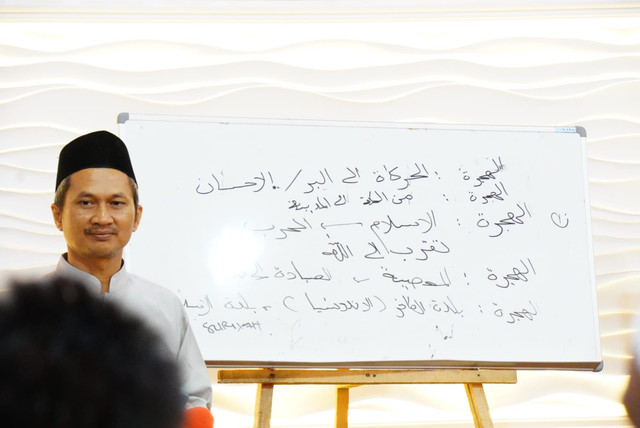 الهجرة : الحركاة الى البر / الإحسان
الهجرة : من الى المدينة
الهجرة : الاسلام الحرب
تقرب الى الله
الهجرة : المعصية العبادة
الهجرة : بلدة الكافر (الاندونسيا) بلدة
SURIYAH